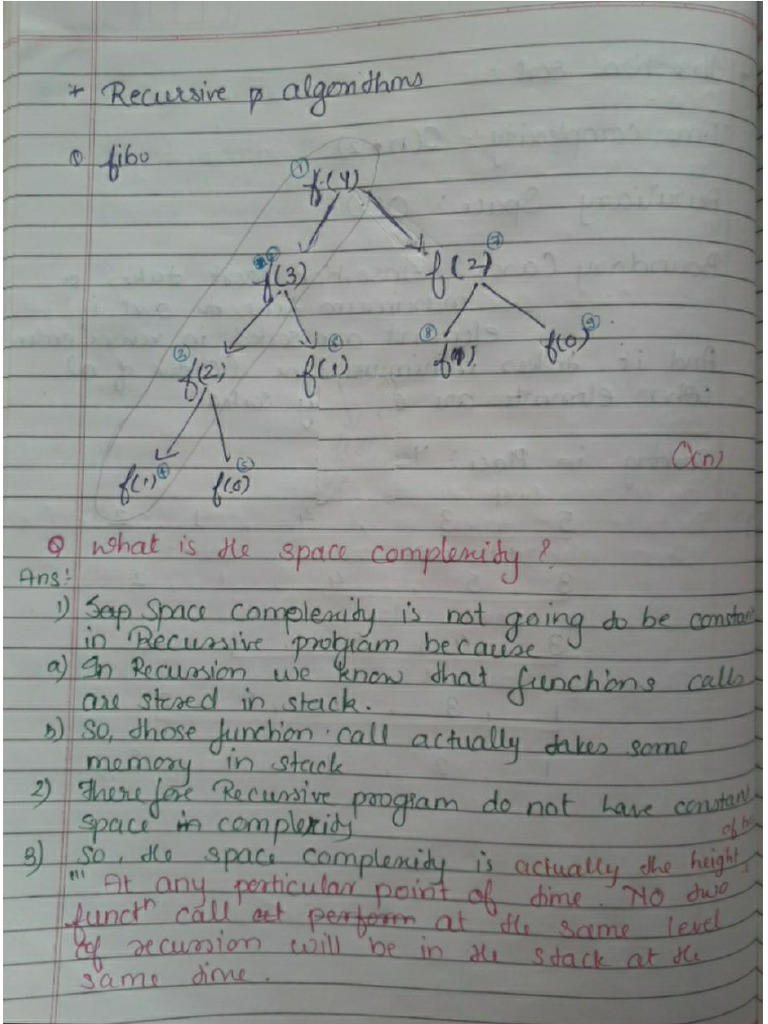 * Recursive algorithms
① fibo
① f(4)
② f(3) f(2) ⑦
③ f(2) f(1) ⑥ ⑧ f(1) f(0) ⑨
f(1) ④ f(0) ⑤
O(n)
Q What is the space complexity?
Ans:
1) Space complexity is not going to be constant
in Recursive program because
a) In Recursion we know that functions calls
are stored in stack.
b) So, those function call actually takes some
memory in stack
2) Therefore Recursive program do not have constant
space complexity
3) So, the space complexity is actually the height
"" At any perticular point of time. No two
functn call at the same level
of recursion will be in the stack at the
same time.